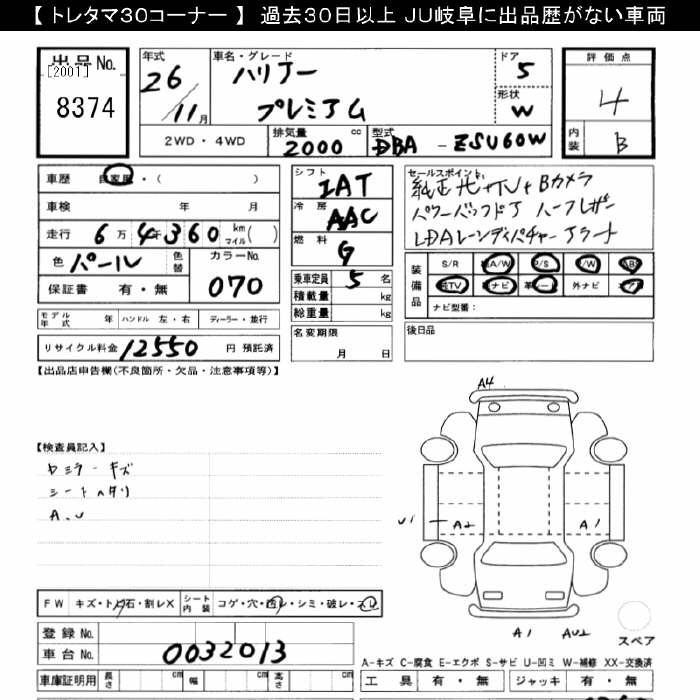 【 トレタマ30コーナー 】 過去30日以上 JU岐阜に出品歴がない車両
出品No. [2001] 8374
年式 26/11月
車名・グレード ハリアー プレミアム
ドア 5
形状 W
評価点 4
内装 B
2WD・4WD
排気量 2000 cc
型式 DBA - ZSU60W
車歴 自家用・( )
車検 年 月
走行 6万4千360 km マイル( )
色 パール 色替
カラーNo. 070
保証書 有・無
モデル年式 年 ハンドル 左・右 ディーラー・並行
リサイクル料金 12550 円 預託済
シフト IAT
冷房 AAC
燃料 G
乗車定員 5 名
積載量 kg
総重量 kg
名変期限 月 日
セールスポイント.
純正ナビ+TV+Bカメラ
パワーバックドア ハーフレザー
LDAレーンディパチャーアラート
装備品 S/R A/W P/S P/W ABS
TV ナビ 革シート 外ナビ エアB
ナビ型番:
後日品
【出品店申告欄(不良箇所・欠品・注意事項等)】
【検査員記入】
ミラーキズ
シートヘタリ
A.U
A4
U1 A2 A1
A1 AU2
スペア
FW キズ・トビ石・割レX シート内装 コゲ・穴・汚レ・シミ・破レ・スレ
登録No.
車台No. 0032013
車庫証明用 長さ cm 幅 cm 高さ cm
A-キズ C-腐食 E-エクボ S-サビ U-凹ミ W-補修 XX-交換済
工具 有・無 ジャッキ 有・無